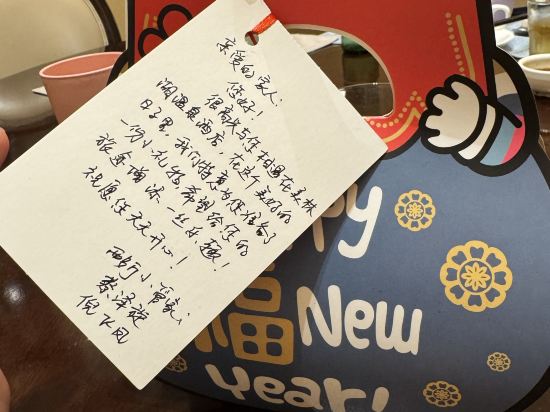 亲爱的家人：
您好！
很高兴与您相遇在美林
湖温泉酒店，在这个美好的
日子里，我们特意为您准备了
一份小礼物，希望给您的
旅途增添一丝乐趣！
祝愿您天天开心！
小管家：
ppy
福 New
Year!